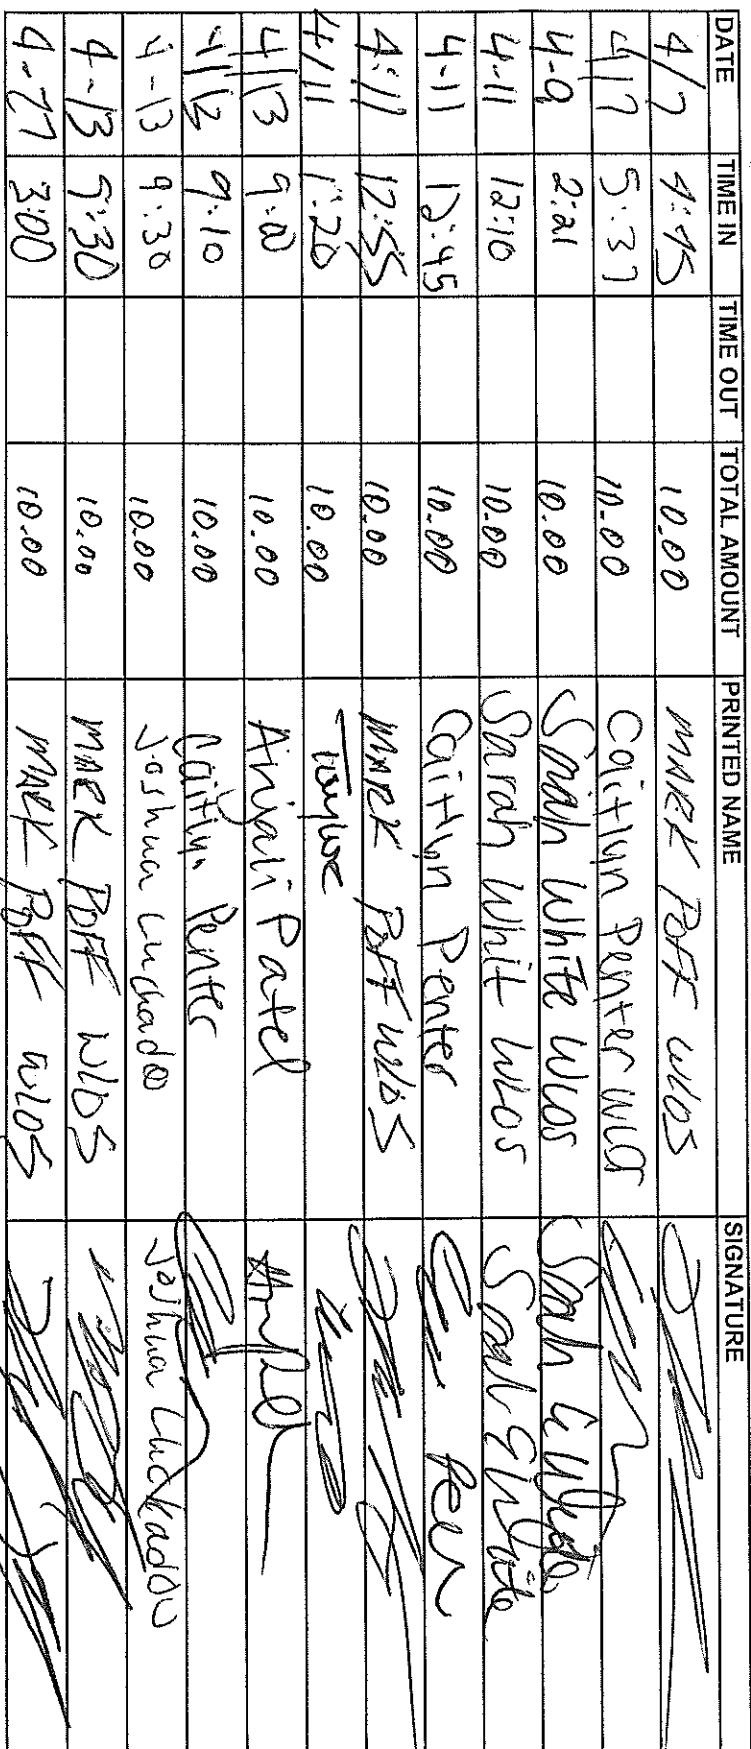 DATE TIME IN TIME OUT TOTAL AMOUNT PRINTED NAME SIGNATURE
4/7 4:45 10.00 MARK POFF WLOS
4/7 5:37 10.00 Caitlyn Penter
4-9 2:21 10.00 Sarah White WLOS
4-11 12:10 10.00 Sarah Whit WLOS Sarah E White
4-11 12:45 10.00 Caitlyn Penter
4:11 12:55 10.00 MARK POFF WLOS
4/11 1:20 10.00
4/13 9:00 10.00 Anjali Patel
4/12 9:10 10.00 Caitlyn Penter
4-13 9:30 10.00 Joshua Joshua
4-13 5:30 10.00 MARK POFF WLOS
4-27 3:00 10.00 MARK POFF WLOS